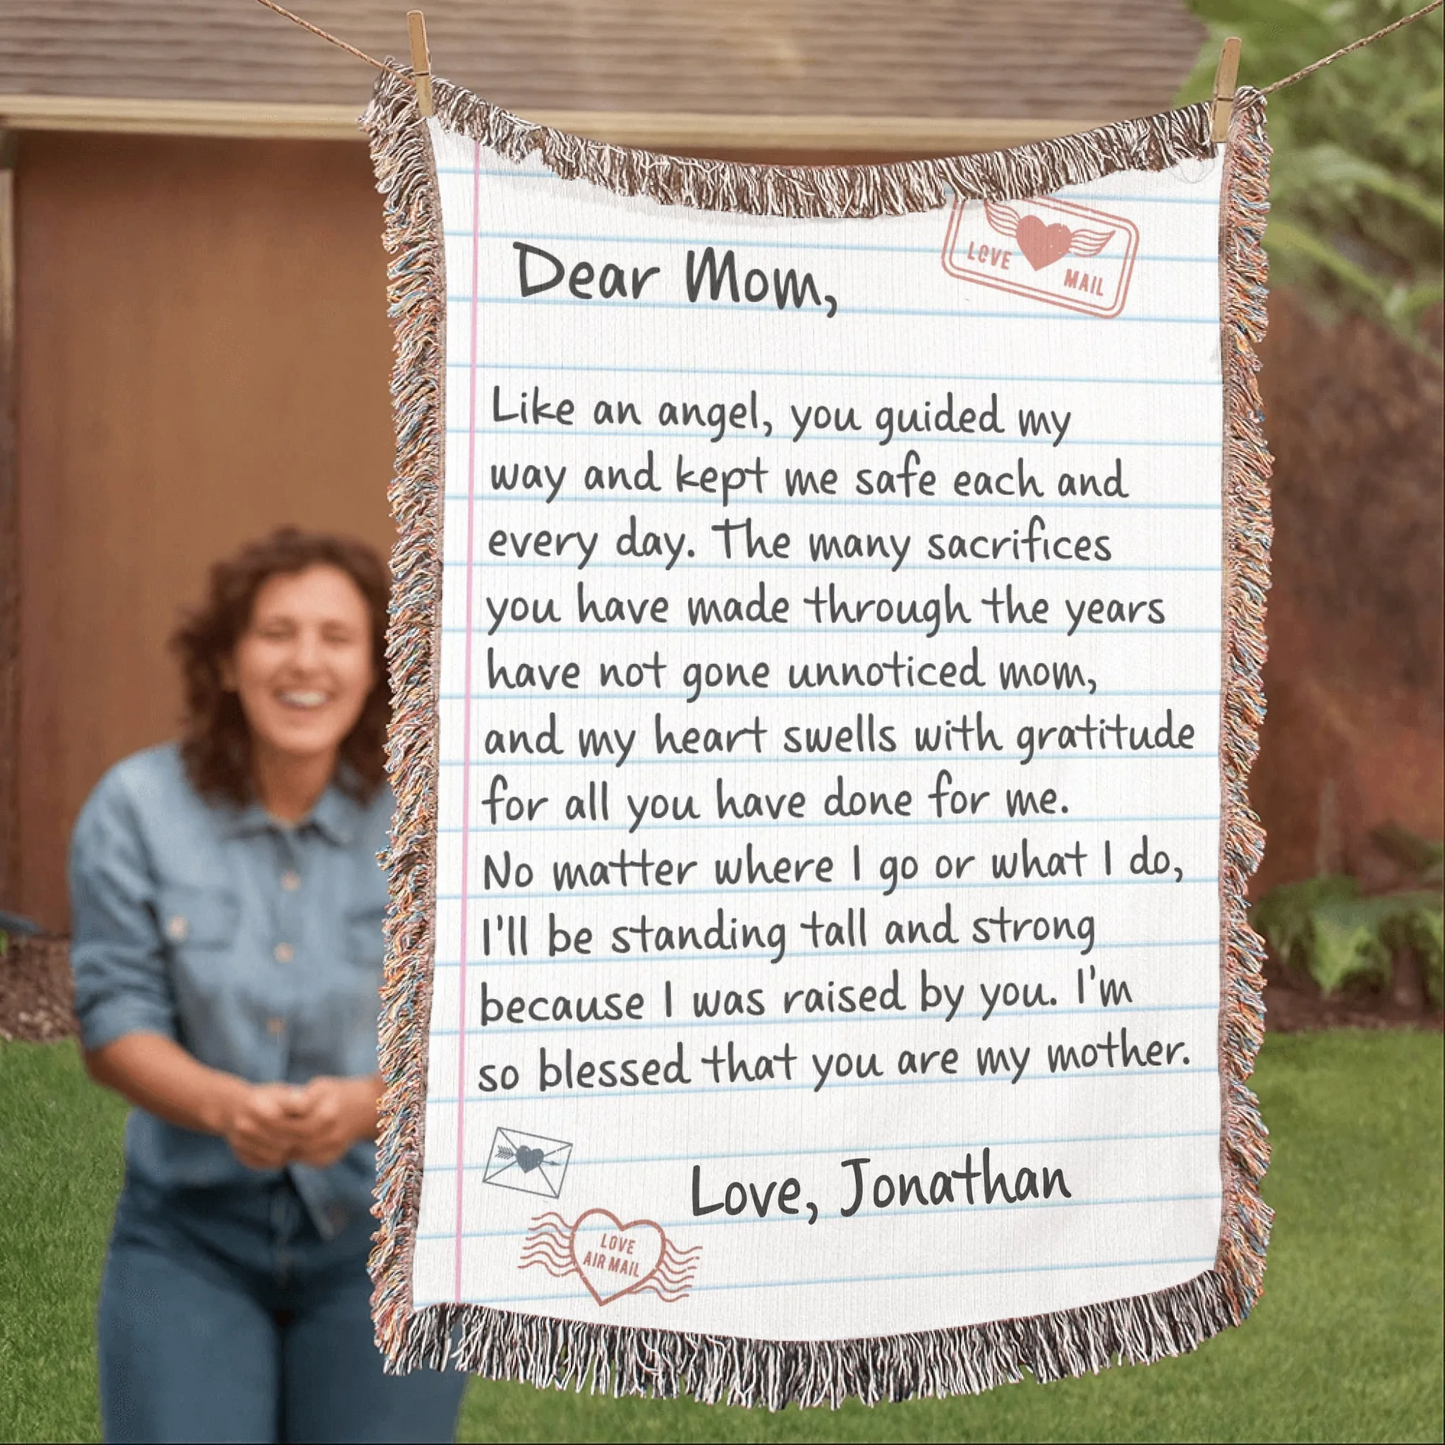 Dear Mom,
LOVE MAIL
Like an angel, you guided my
way and kept me safe each and
every day. The many sacrifices
you have made through the years
have not gone unnoticed mom,
and my heart swells with gratitude
for all you have done for me.
No matter where I go or what I do,
I'll be standing tall and strong
because I was raised by you. I'm
so blessed that you are my mother.
Love, Jonathan
LOVE
AIR MAIL